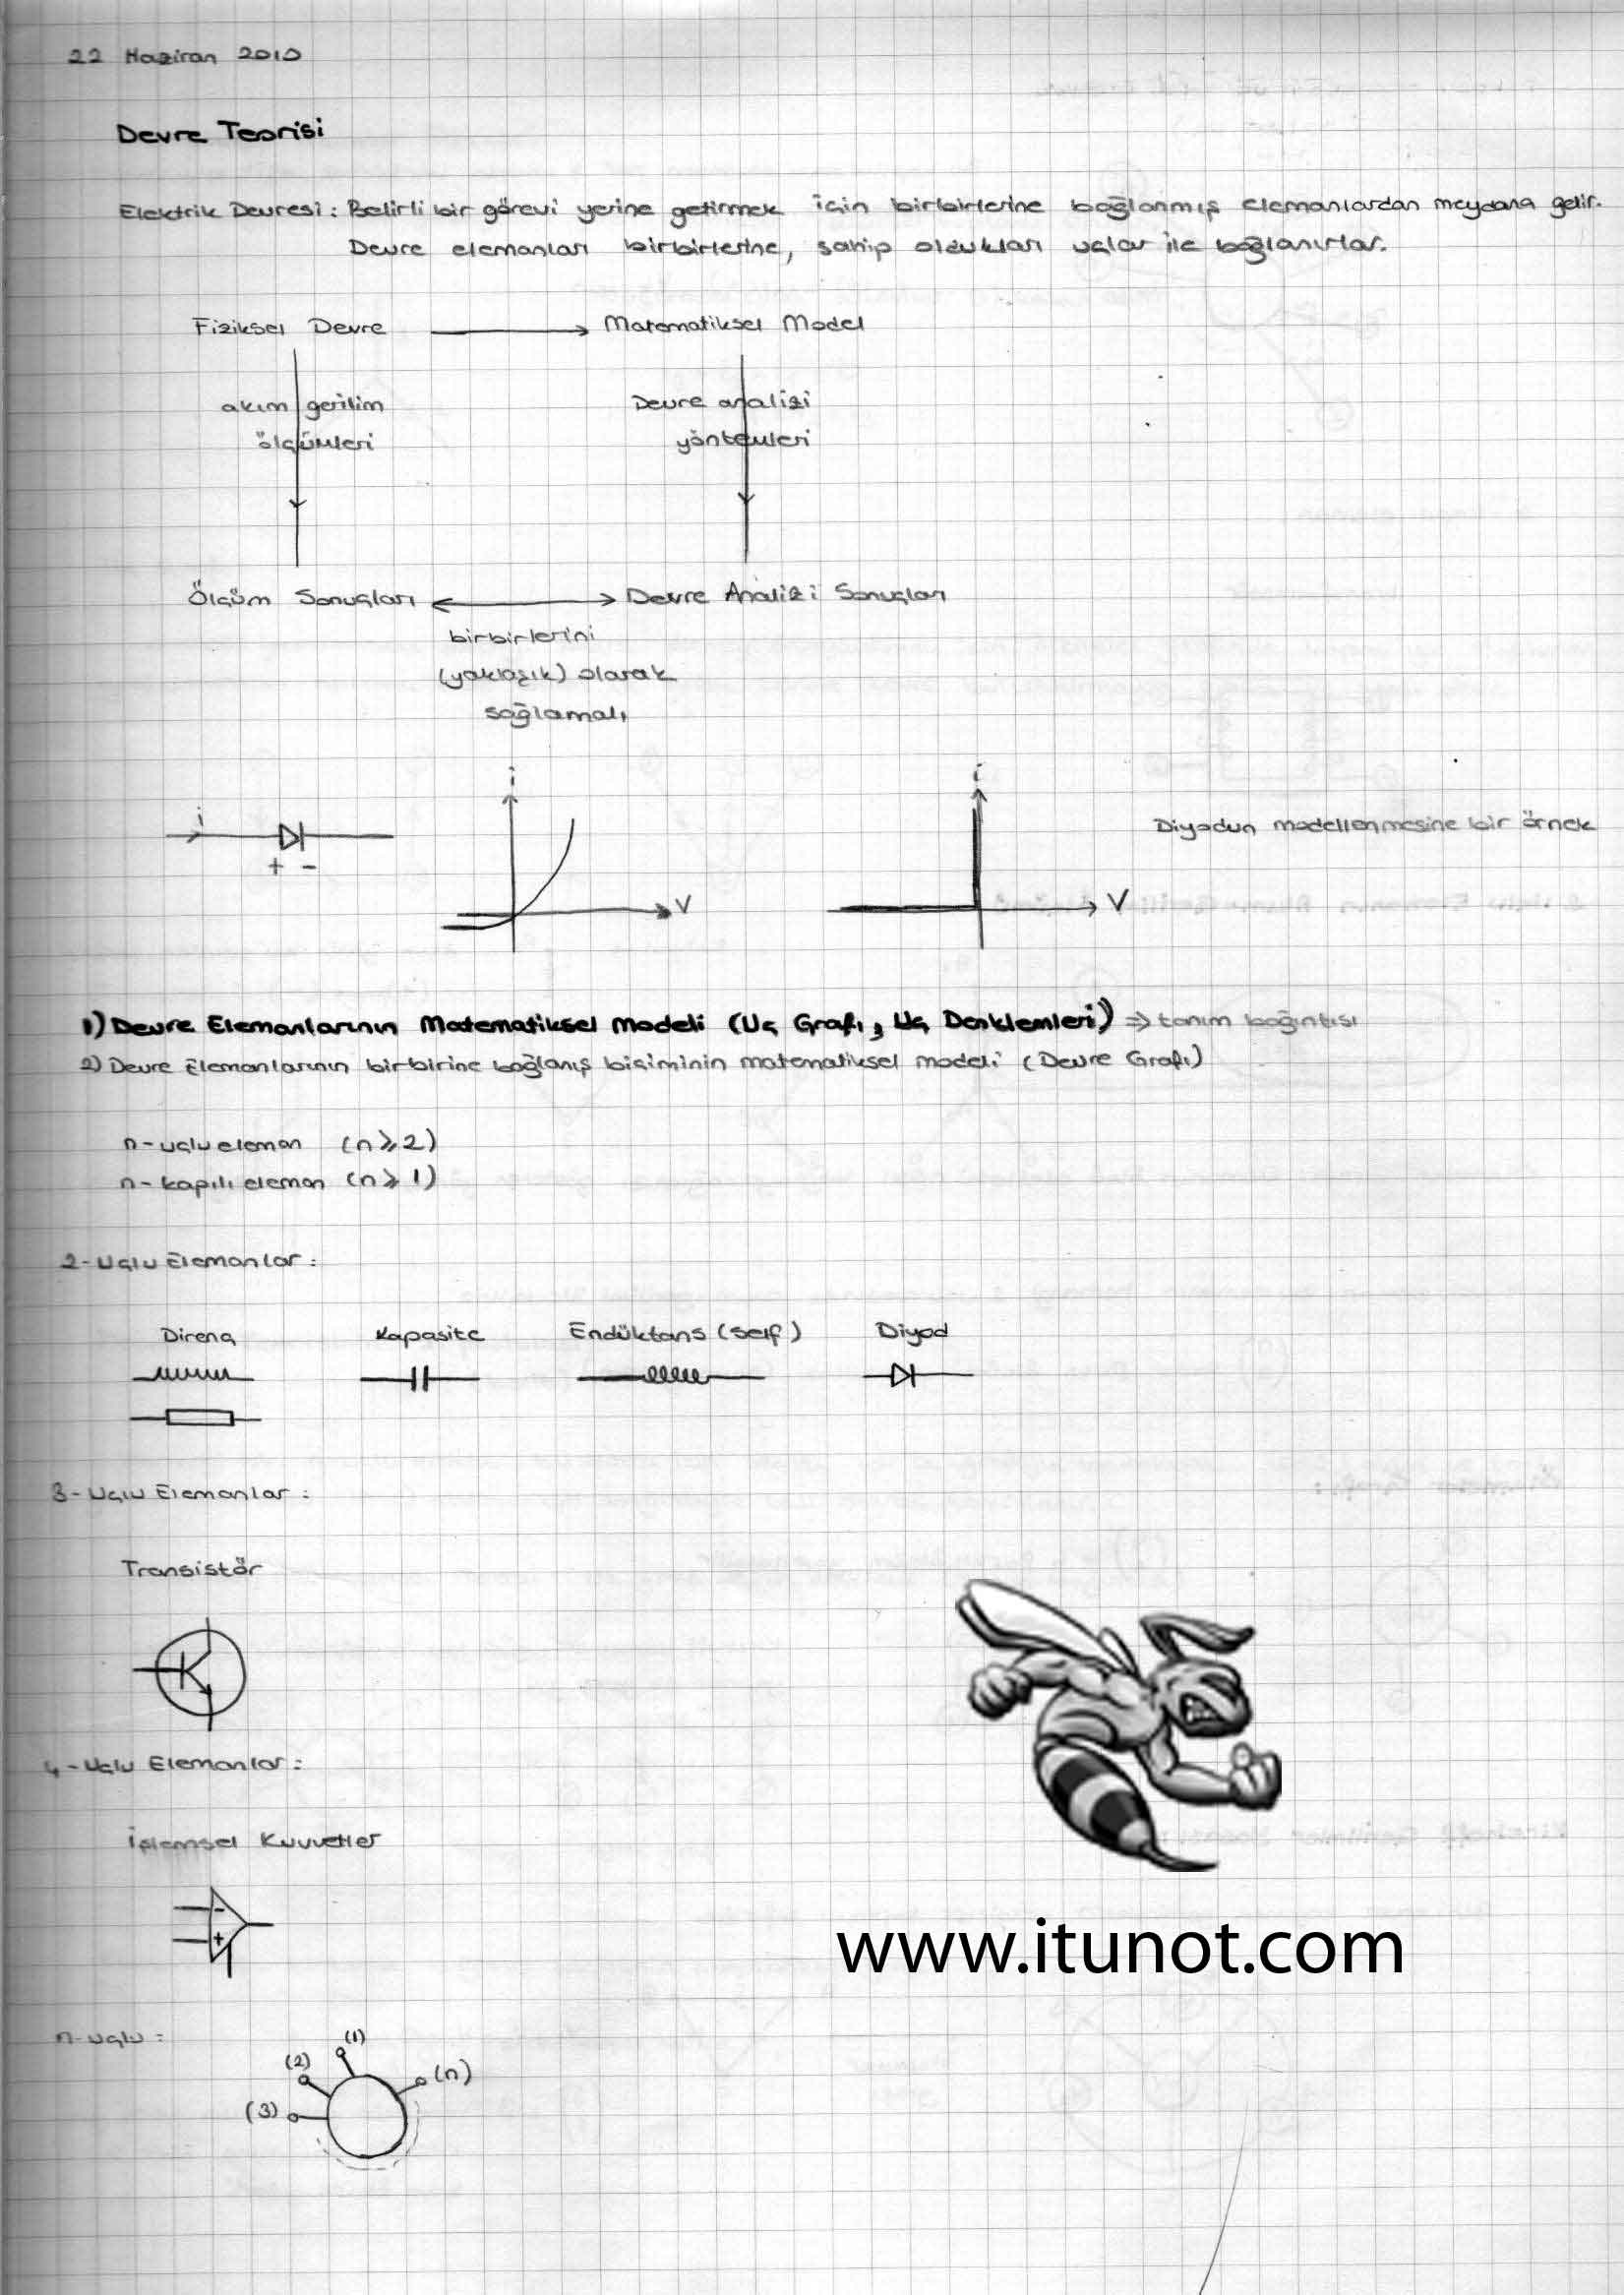 22 Haziran 2010
Devre Teorisi
Elektrik Devresi : Belirli bir görevi yerine getirmek için birbirlerine bağlanmış elemanlardan meydana gelir.
Devre elemanları birbirlerine, sahip oldukları uçlar ile bağlanırlar.
Fiziksel Devre → Matematiksel Model
akım gerilim
ölçümleri
Devre analizi
yöntemleri
Ölçüm Sonuçları ↔ Devre Analizi Sonuçları
birbirlerini
(yaklaşık) olarak
sağlamalı
i
+ -
i
V
i
V
Diyodun modellenmesine bir örnek
1) Devre Elemanlarının Matematiksel Modeli (Uç Grafı, Uç Denklemleri) ⇒ tanım bağıntısı
2) Devre Elemanlarının birbirine bağlanış biçiminin matematiksel modeli (Devre Grafı)
n-uçlu eleman (n ≥ 2)
n-kapılı eleman (n ≥ 1)
2-Uçlu Elemanlar :
Direnç Kapasite Endüktans (self) Diyod
3-Uçlu Elemanlar :
Transistör
4-Uçlu Elemanlar :
İşlemsel Kuvvetler
-
+
www.itunot.com
n-uçlu :
(1)
(2)
(n)
(3)